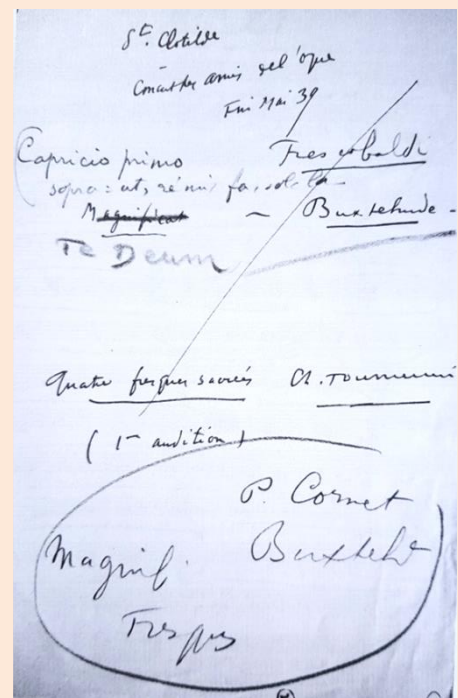 St. Clotilde
Concert des amis de l'orgue
Fin Mai 39
Capricio primo Frescobaldi
sopra : ut, ré mi fa, sol la
Magnificat – Buxtehude -
Te Deum
Quatre fresques sacrées Ch. Tournemire
(1re audition)
P. Cornet
Magnif. Buxtehd
Fresques